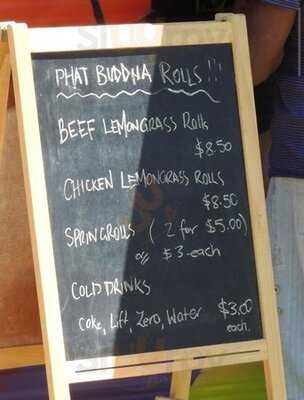 PHAT BUDDHA ROLLS!!!
BEEF LEMONGRASS Rolls
$8.50
CHICKEN LEMONGRASS ROLLS
$8.50
SPRINGROLLS ( 2 for $5.00)
or $3-each
COLD DRINKS
Coke, Lift, Zero, Water $3.00
each.